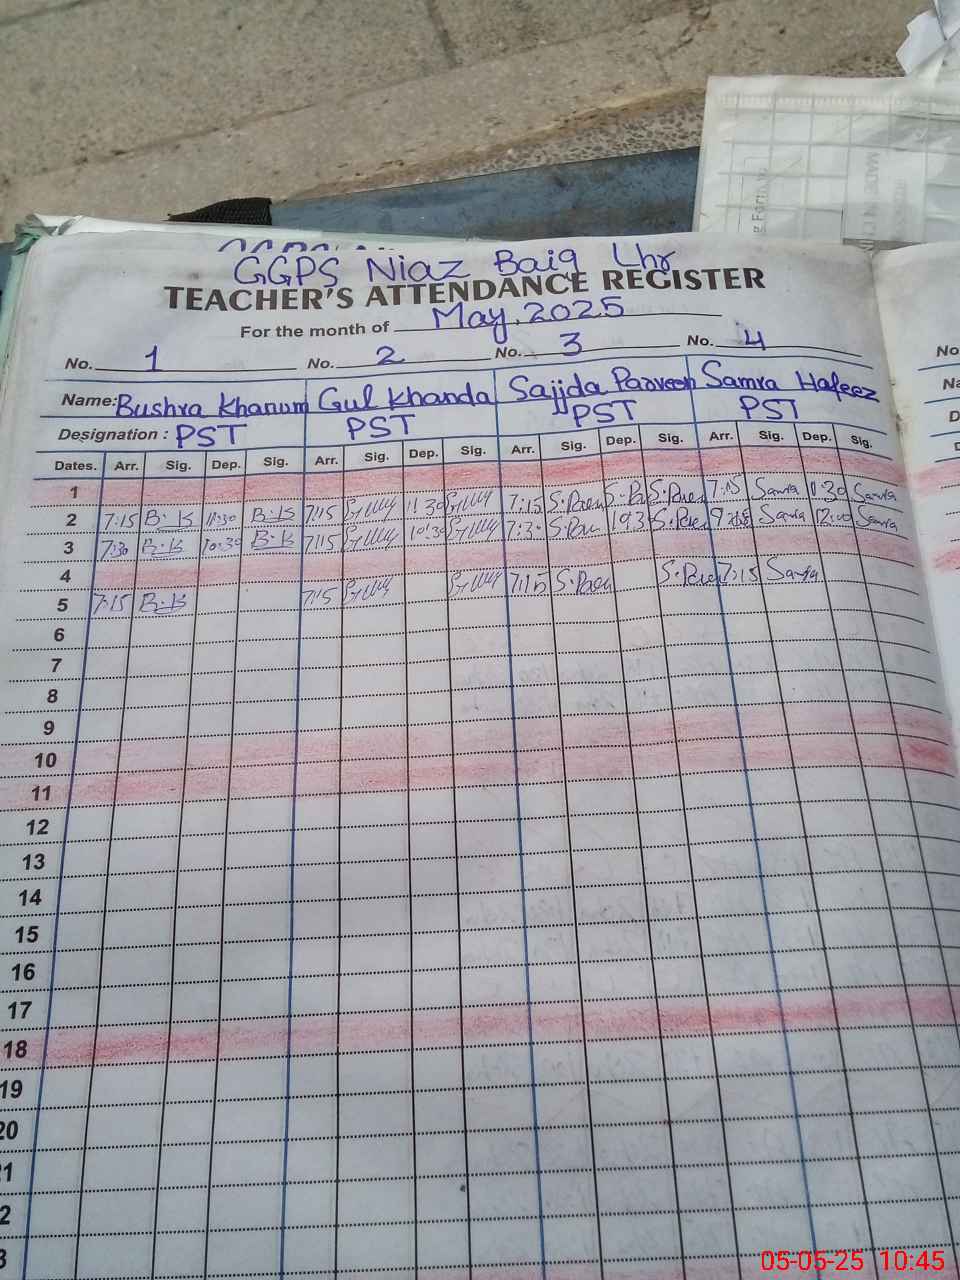 GGPS Niaz Baig Lhr
TEACHER'S ATTENDANCE REGISTER
For the month of May, 2025
No. 1 No. 2 No. 3 No. 4 No.
Name: Bushra Khanum Gul Khanda Sajjda Parveen Samra Hafeez
Designation : PST PST PST PST
Dates. Arr. Sig. Dep. Sig. Arr. Sig. Dep. Sig. Arr. Sig. Dep. Sig. Arr. Sig. Dep. Sig.
1
2 7:15 B.K 11:30 B.K 7:15 11:30 7:15 7:15 Samra 11:30 Samra
3 7:30 B.K 10:30 B.K 7:15 10:30 7:30 10:30 Samra 12:00 Samra
4
5 7:15 B.K 7:15 7:15 7:15 Samra
6
7
8
9
10
11
12
13
14
15
16
17
18
19
20
21
05-05-25 10:45